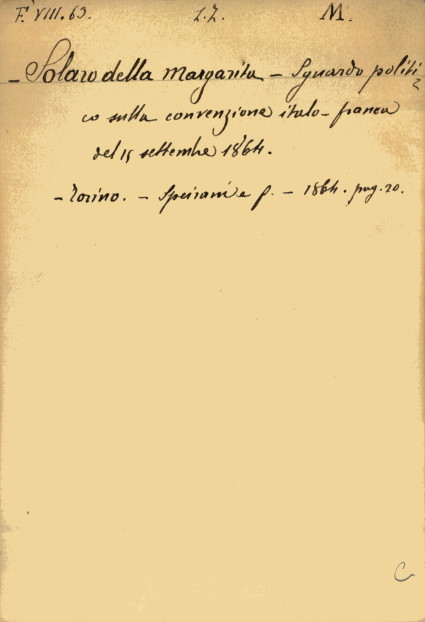 F. VIII. 63. L.Z. M.
- Solaro della Margarita - Sguardo politi-
co sulla convenzione italo-franca
del 15 settembre 1864.
- Torino. - Speirani e f. - 1864. pag. 20.
C